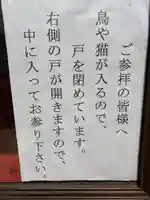 ご参拝の皆様へ
鳥や猫が入るので、
戸を閉めています。
右側の戸が開きますので、
中に入ってお参り下さい。